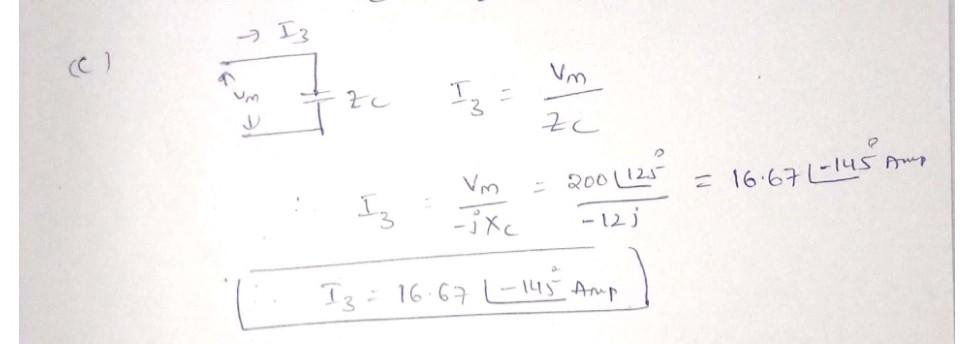 → I3
(C)
Vm
ZC
I3 = Vm / ZC
∴ I3 = Vm / -jXC = 200∠125° / -12j = 16.67∠-145° Amp
∴ I3 = 16.67∠-145° Amp